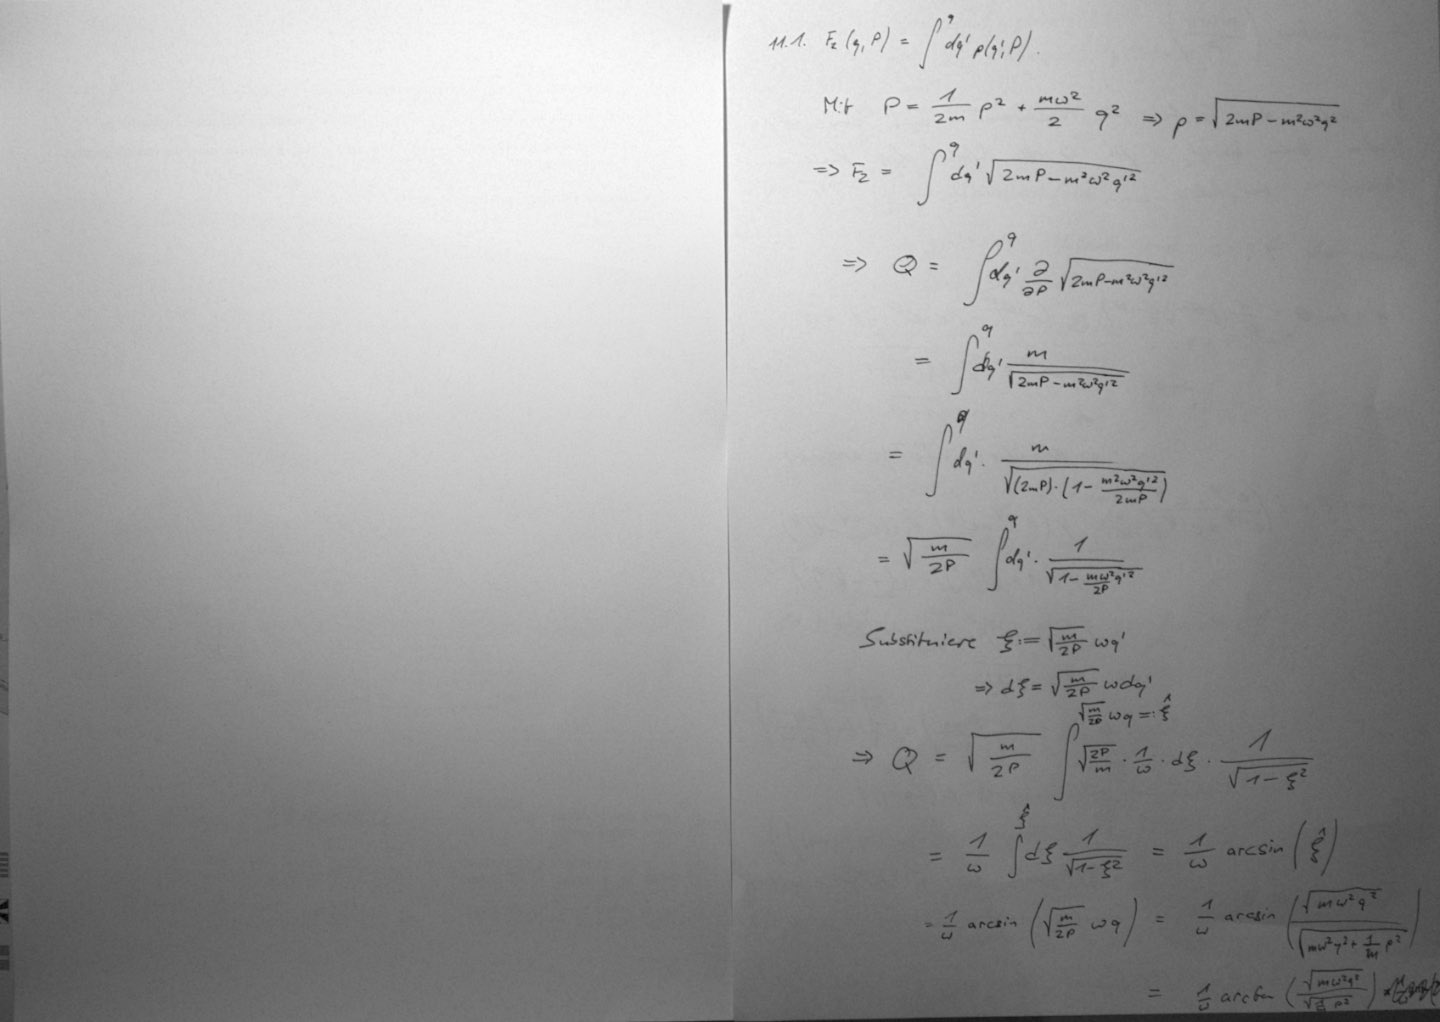 11.1. F₂(q,P) = ∫^q dq' p(q',P).
Mit P = 1/2m p² + mω²/2 q² => p = √(2mP - m²ω²q²)
=> F₂ = ∫^q dq' √(2mP - m²ω²q'²)
=> Q = ∫^q dq' ∂/∂P √(2mP - m²ω²q'²)
= ∫^q dq' m/√(2mP - m²ω²q'²)
= ∫^q dq' · m/√((2mP)·(1 - m²ω²q'²/2mP))
= √(m/2P) ∫^q dq' · 1/√(1 - mω²q'²/2P)
Substituiere ξ := √(m/2P) ωq'
=> dξ = √(m/2P) ωdq'
√(m/2P) ωq =: ξ̂
=> Q = √(m/2P) ∫ √(2P/m) · 1/ω · dξ · 1/√(1 - ξ²)
= 1/ω ∫^ξ̂ dξ 1/√(1-ξ²) = 1/ω arcsin(ξ̂)
= 1/ω arcsin(√(m/2P) ωq) = 1/ω arcsin(√(mω²q²)/√(mω²q² + 1/m p²))
= 1/ω arctan(√(mω²q²)/√(1/m p²))